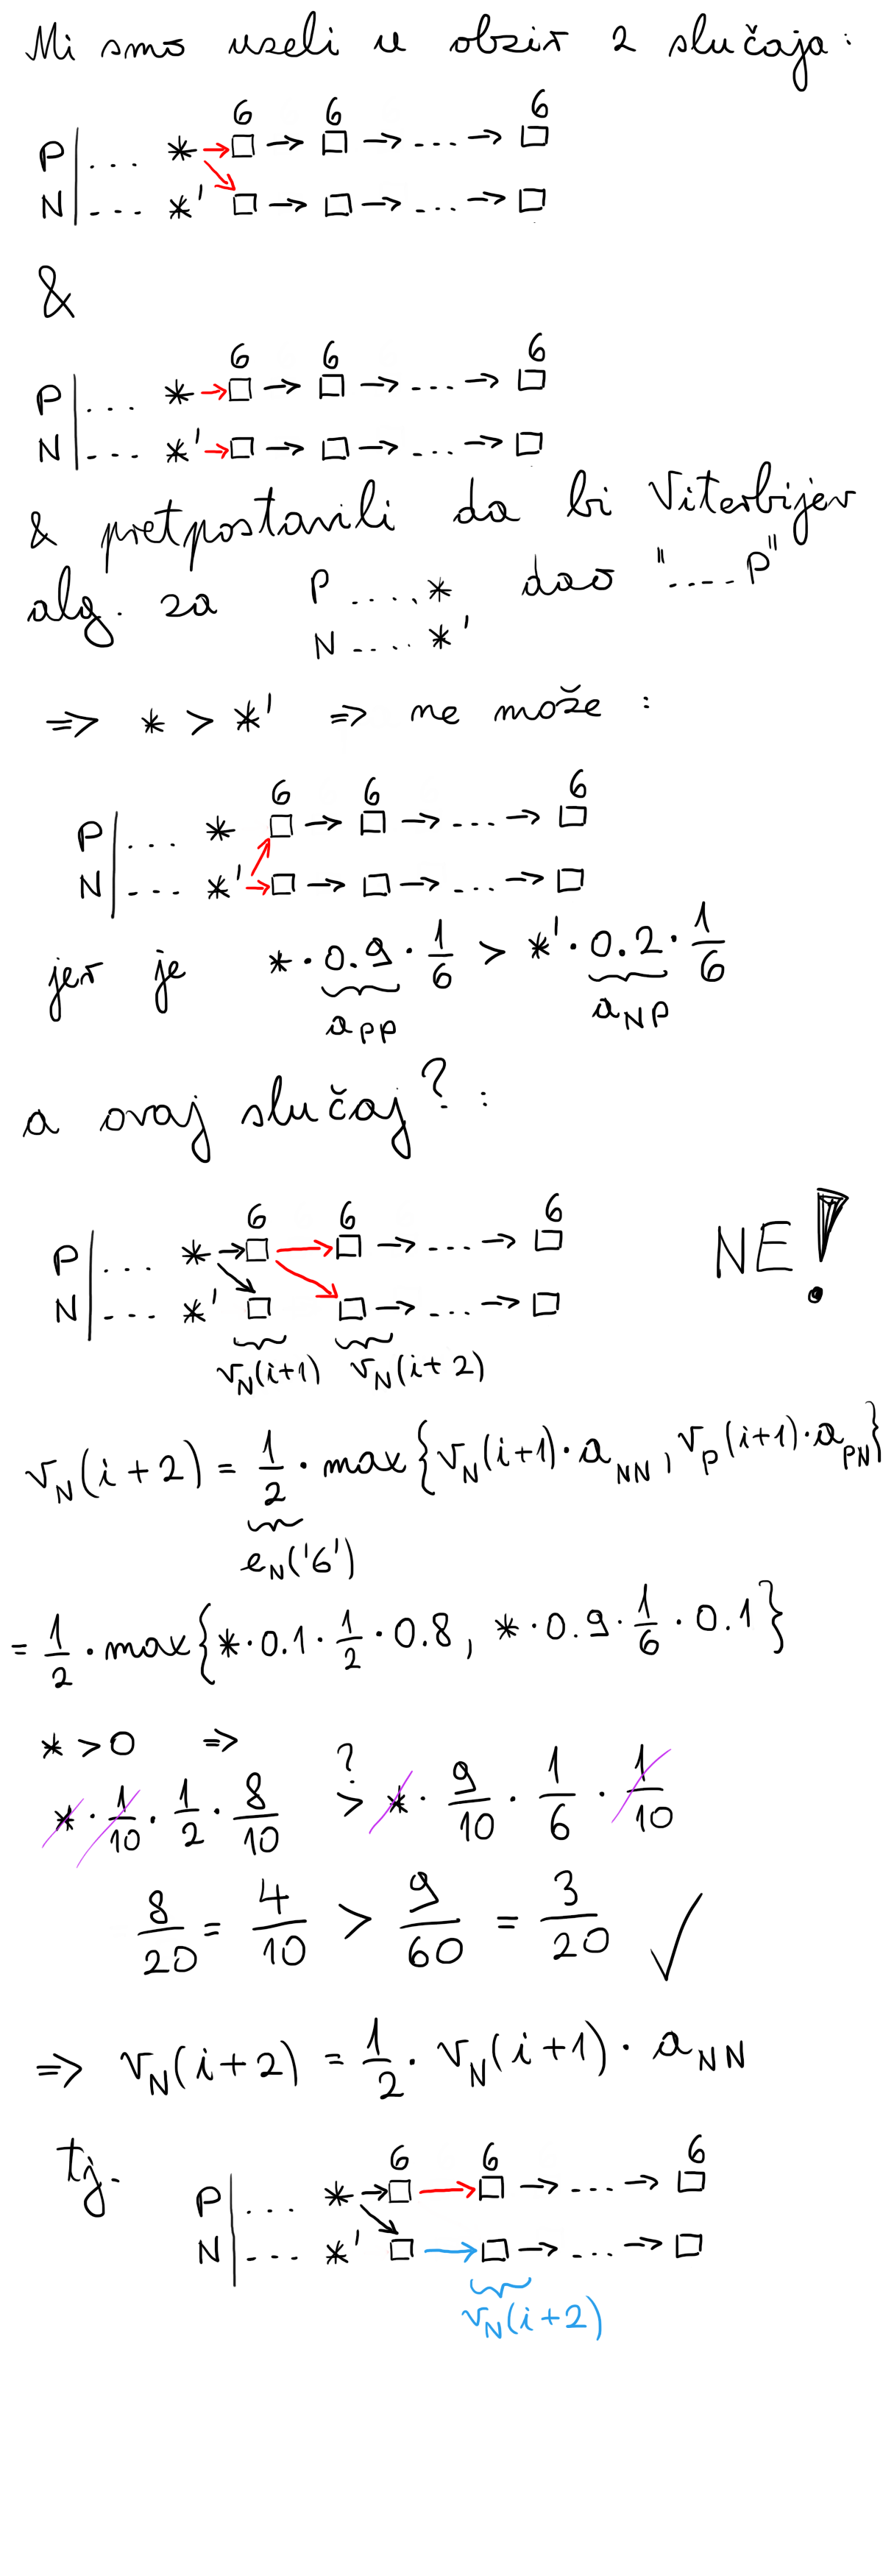 Mi smo uzeli u obzir 2 slučaja:
6 6 6
P | ... * → □ → □ → ... → □
N | ... *' □ → □ → ... → □
&
6 6 6
P | ... * → □ → □ → ... → □
N | ... *' → □ → □ → ... → □
& pretpostavili da bi Viterbijev
alg. za P ....* dao "....P"
N ....*'
⇒ * > *' ⇒ ne može:
6 6 6
P | ... * □ → □ → ... → □
N | ... *' → □ → □ → ... → □
jer je * · 0.9 · 1/6 > *' · 0.2 · 1/6
a_PP a_NP
a ovaj slučaj?:
6 6 6
P | ... * → □ → □ → ... → □ NE!
N | ... *' □ □ → ... → □
v_N(i+1) v_N(i+2)
v_N(i+2) = 1/2 · max{v_N(i+1)·a_NN, v_P(i+1)·a_PN}
e_N('6')
= 1/2 · max{* · 0.1 · 1/2 · 0.8, * · 0.9 · 1/6 · 0.1}
* > 0 ⇒
?
* · 1/10 · 1/2 · 8/10 > * · 9/10 · 1/6 · 1/10
8/20 = 4/10 > 9/60 = 3/20 ✓
⇒ v_N(i+2) = 1/2 · v_N(i+1) · a_NN
tj.
6 6 6
P | ... * → □ → □ → ... → □
N | ... *' □ → □ → ... → □
v_N(i+2)